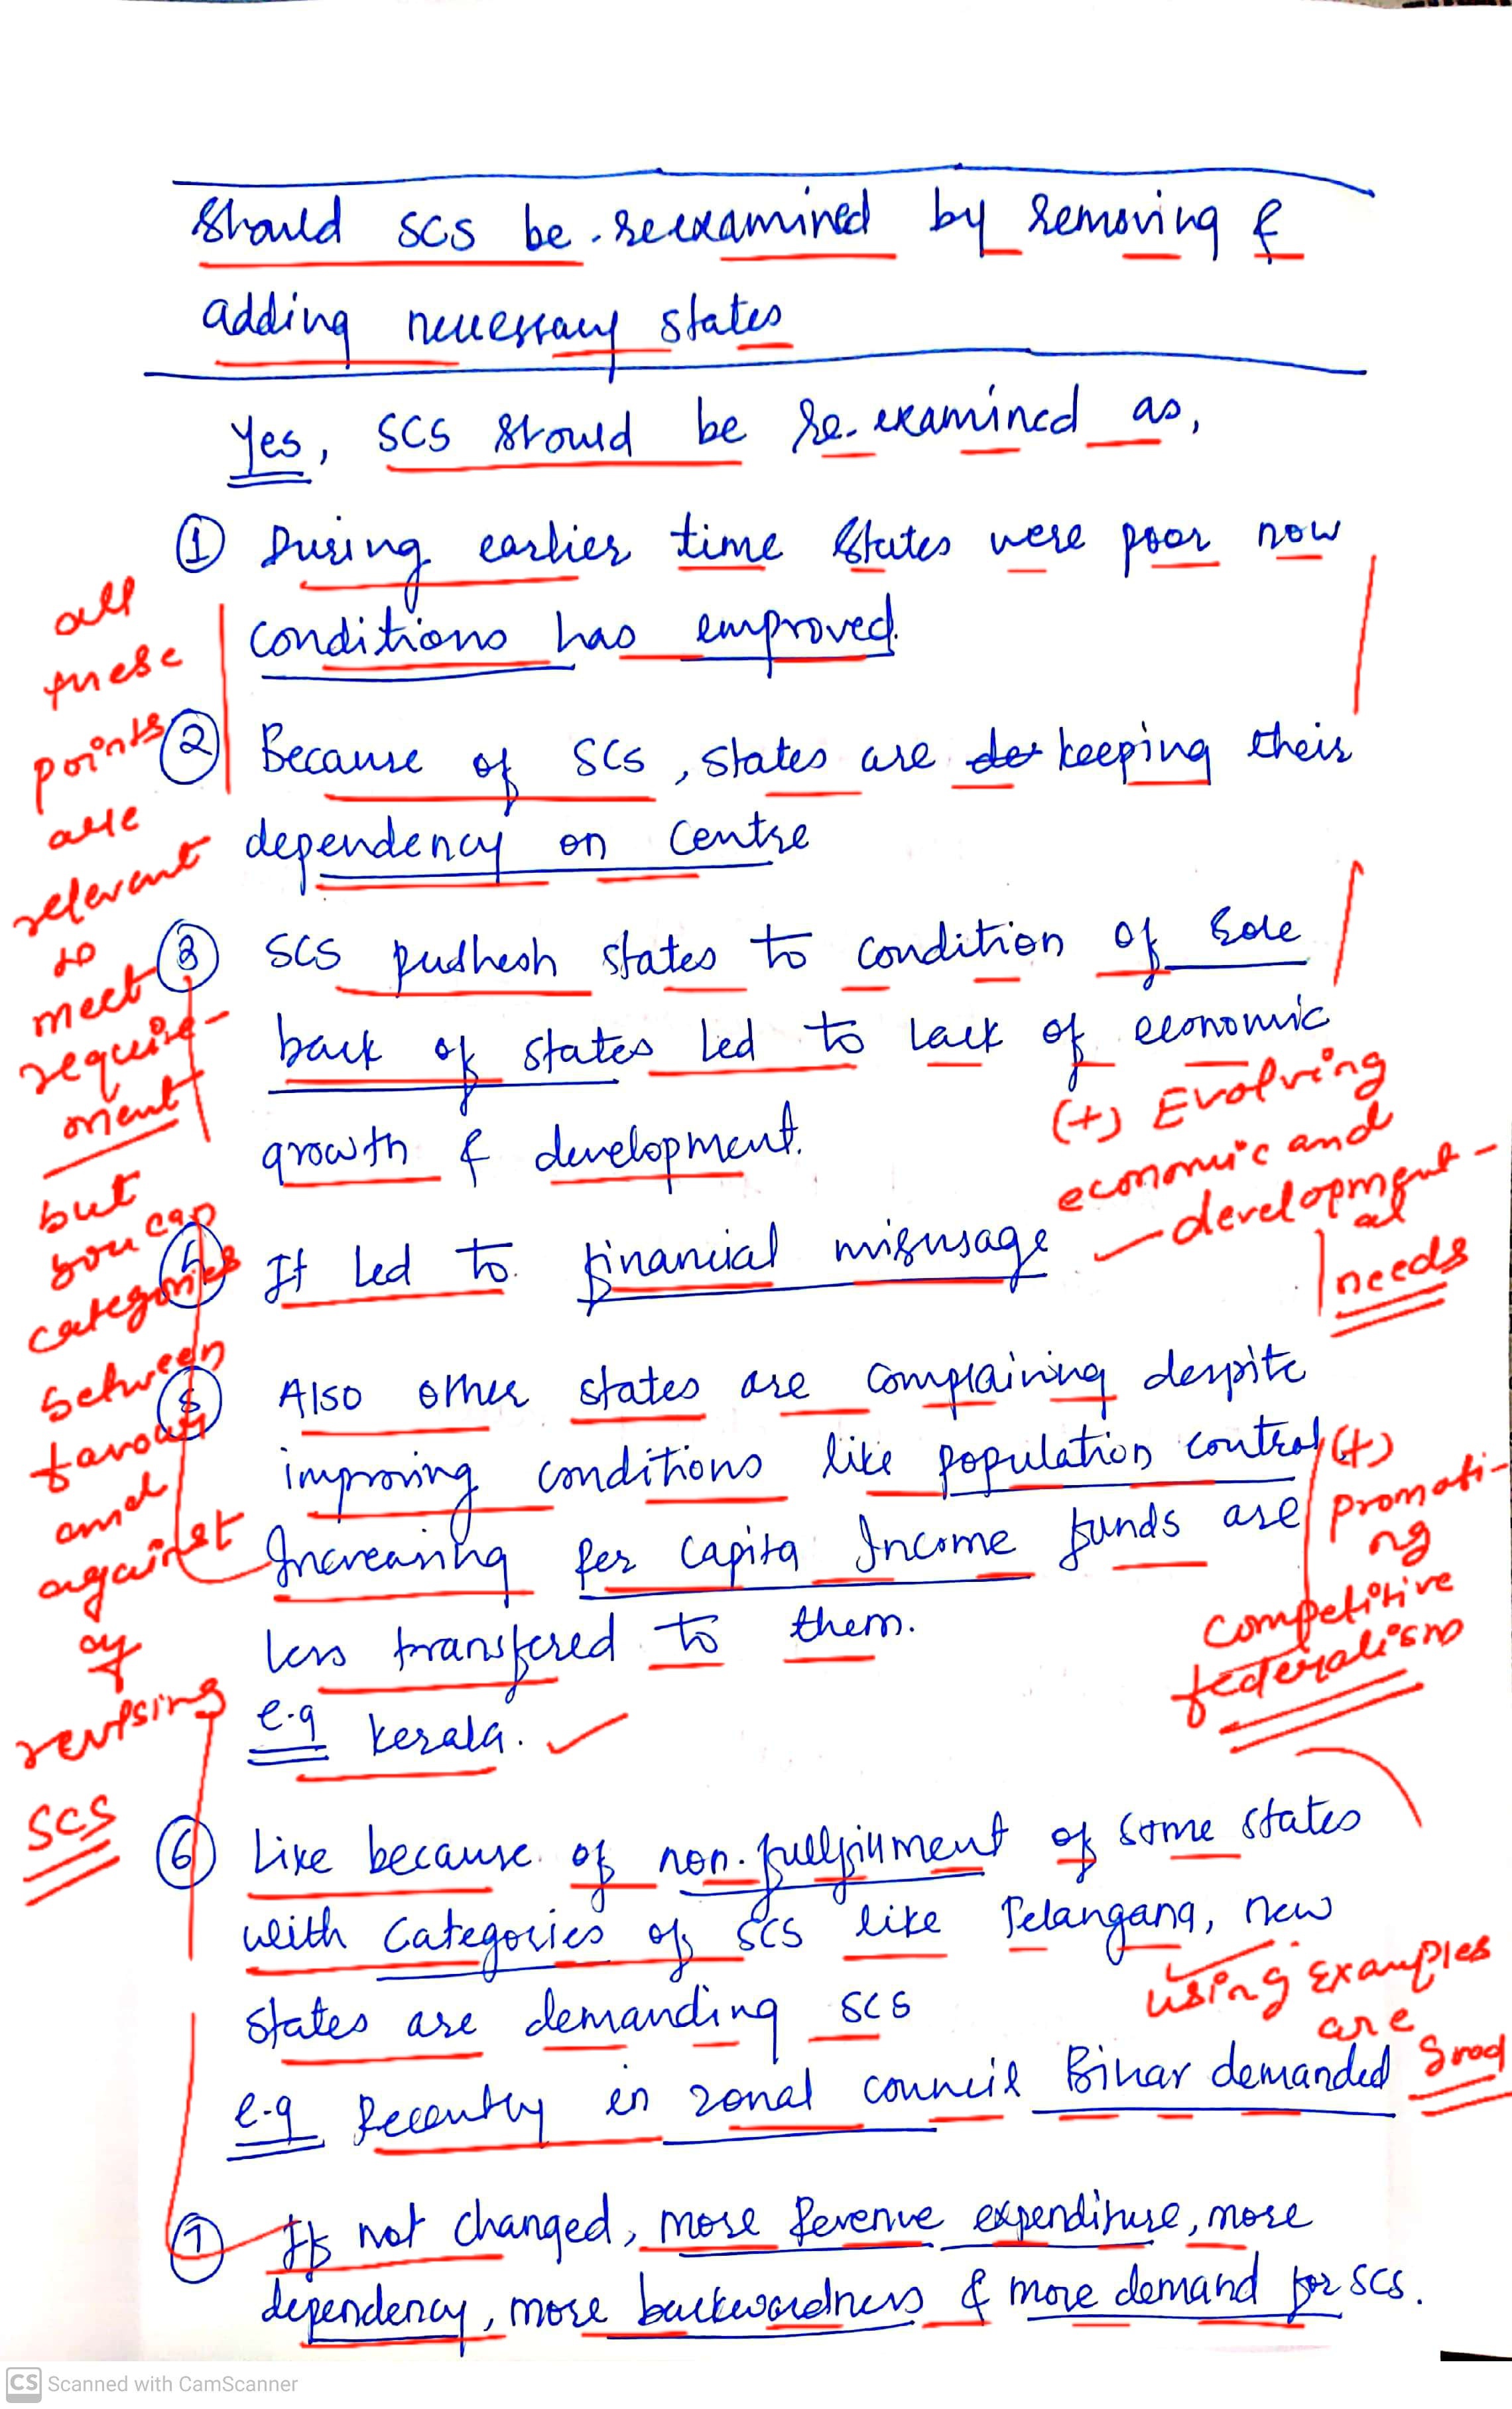 Should SCS be reexamined by removing &
adding necessary states
Yes, SCS should be Re-examined as,
① During earlier time States were poor now
conditions has emproved.
② Because of SCS, states are keeping their
dependency on Centre
③ SCS pushesh states to condition of
back of states led to lack of economic
growth & development.
④ It led to financial misusage
⑤ Also other states are complaining despite
improving conditions like population control
Increasing Per Capita Income funds are
less transfered to them.
e.g Kerala.
⑥ Like because of non-fullfillment of some states
with Categories of SCS like Telangana, new
states are demanding SCS
e.g Recently in zonal council Bihar demanded
⑦ If not changed, more Revenue expenditure, more
dependency, more backwardness & more demand for SCS.
all
these
points
are
relevant
to
meet
require-
ment
but
you can
categories
between
favour
and
against
of
revising
SCS
(+) Evolving
economic and
development-
al
needs
(+)
promoti-
ng
competitive
federalism
using Examples
are
good
CS Scanned with CamScanner